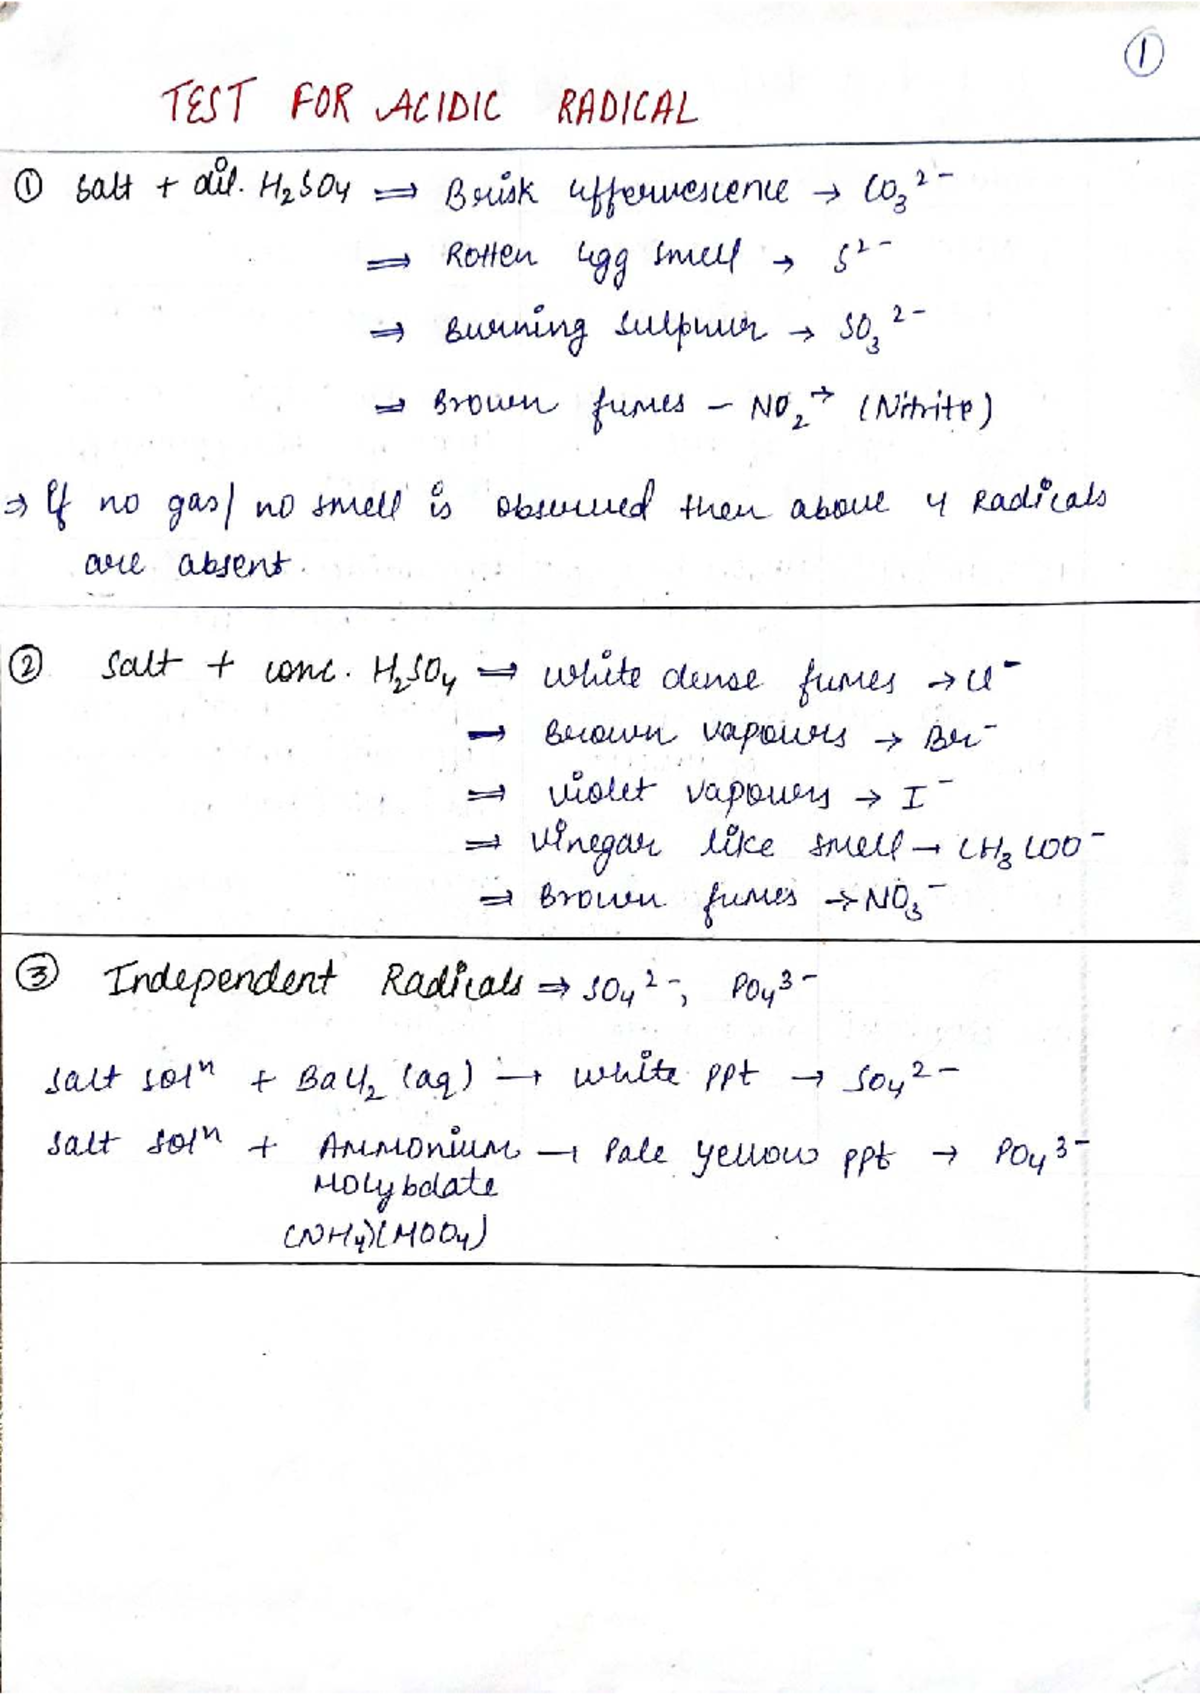 ①
TEST FOR ACIDIC RADICAL
① Salt + dil. H₂SO₄ ⇒ Brisk effervescence → CO₃²⁻
⇒ Rotten egg smell → S²⁻
⇒ Burning sulphur → SO₃²⁻
⇒ Brown fumes – NO₂→ (Nitrite)
⇒ If no gas/ no smell is observed then above 4 Radicals
are absent.
② Salt + conc. H₂SO₄ ⇒ White dense fumes → Cl⁻
⇒ Brown vapours → Br⁻
⇒ violet vapours → I⁻
⇒ Vinegar like smell → CH₃COO⁻
⇒ Brown fumes → NO₃⁻
③ Independent Radicals ⇒ SO₄²⁻, PO₄³⁻
Salt solⁿ + BaCl₂ (aq) → White ppt → SO₄²⁻
Salt solⁿ + Ammonium → Pale yellow ppt → PO₄³⁻
Molybdate
(NH₄)(MoO₄)